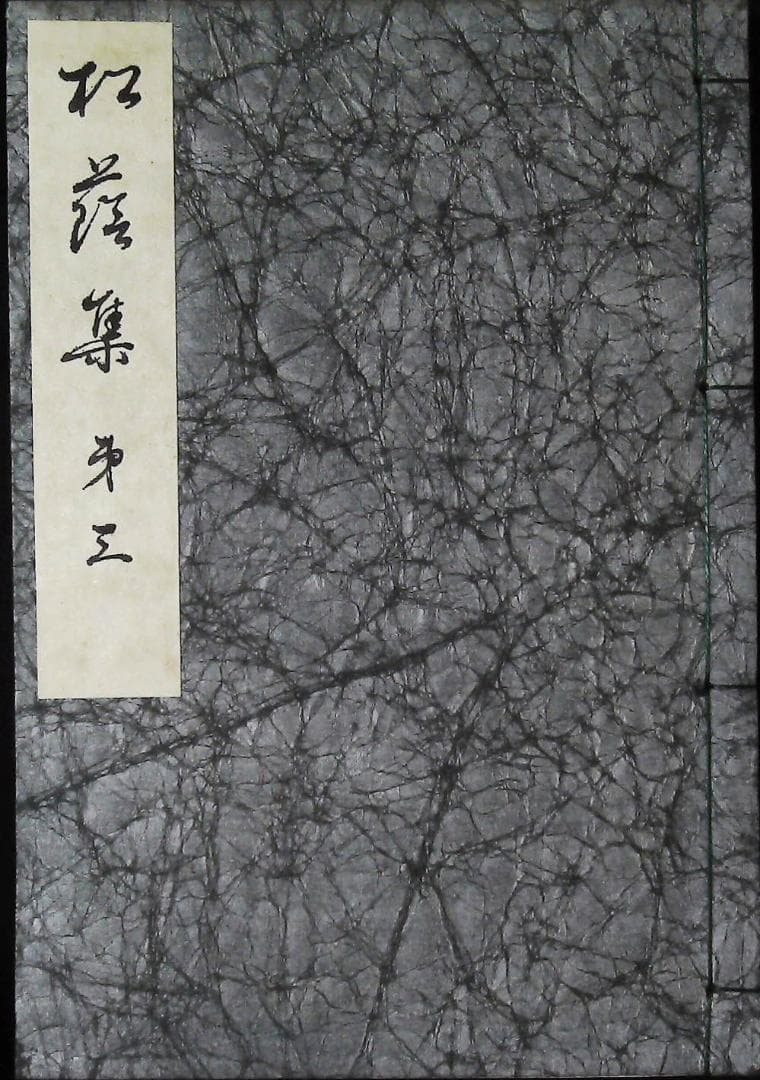 松蔭集 第三